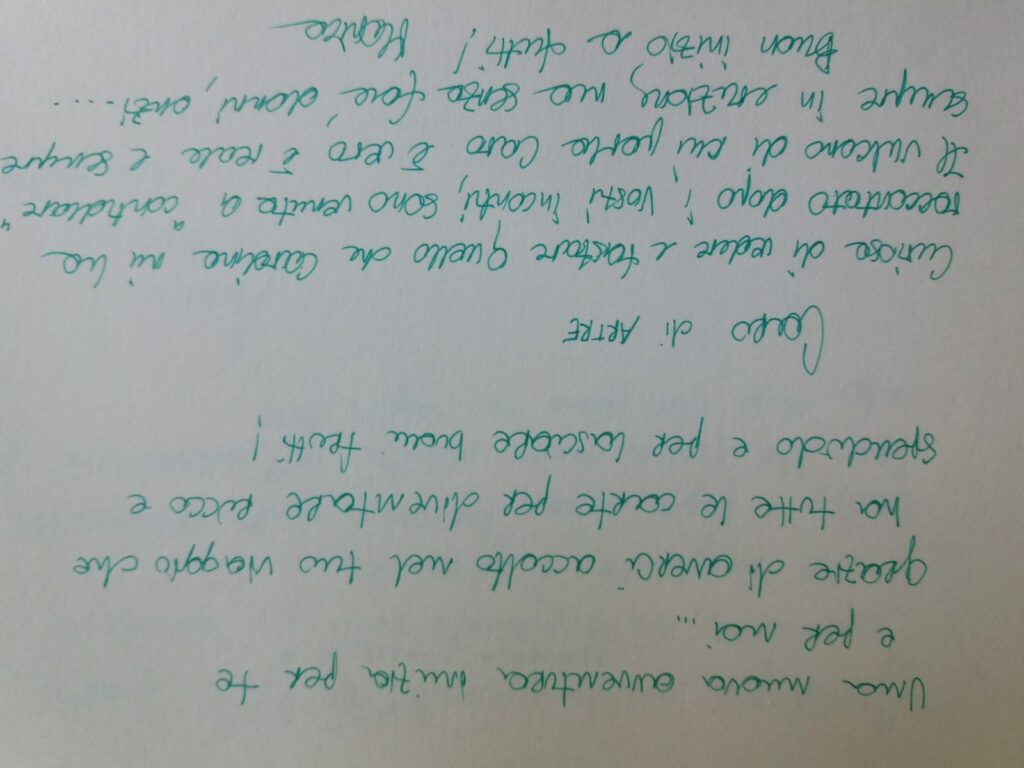 Una nuova avventura inizia per te
e per noi...
grazie di averci accolto nel tuo viaggio che
ha tutte le carte per diventare ricco e
splendido e per lasciare buoni frutti!
Caro di ARTRE
Curiosa di vedere e tastare quello che Carolina mi ha
raccontato dopo i vostri incontri, sono venuta a "controllare"
Il vulcano di cui parla Caro è vero è reale e sempre
sempre in eruzione, ma senza fare danni, anzi....
Buon inizio a tutti!